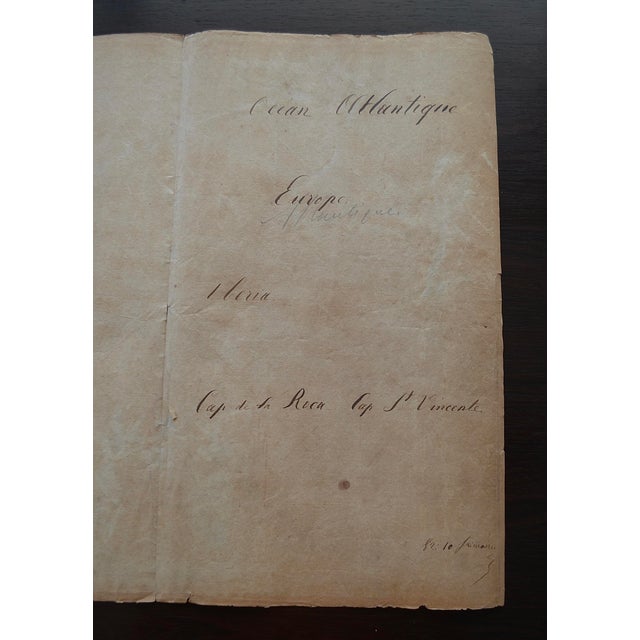 Océan Atlantique
Europe.
Atlantique
Iberia
Cap de la Roca Cap St Vincente